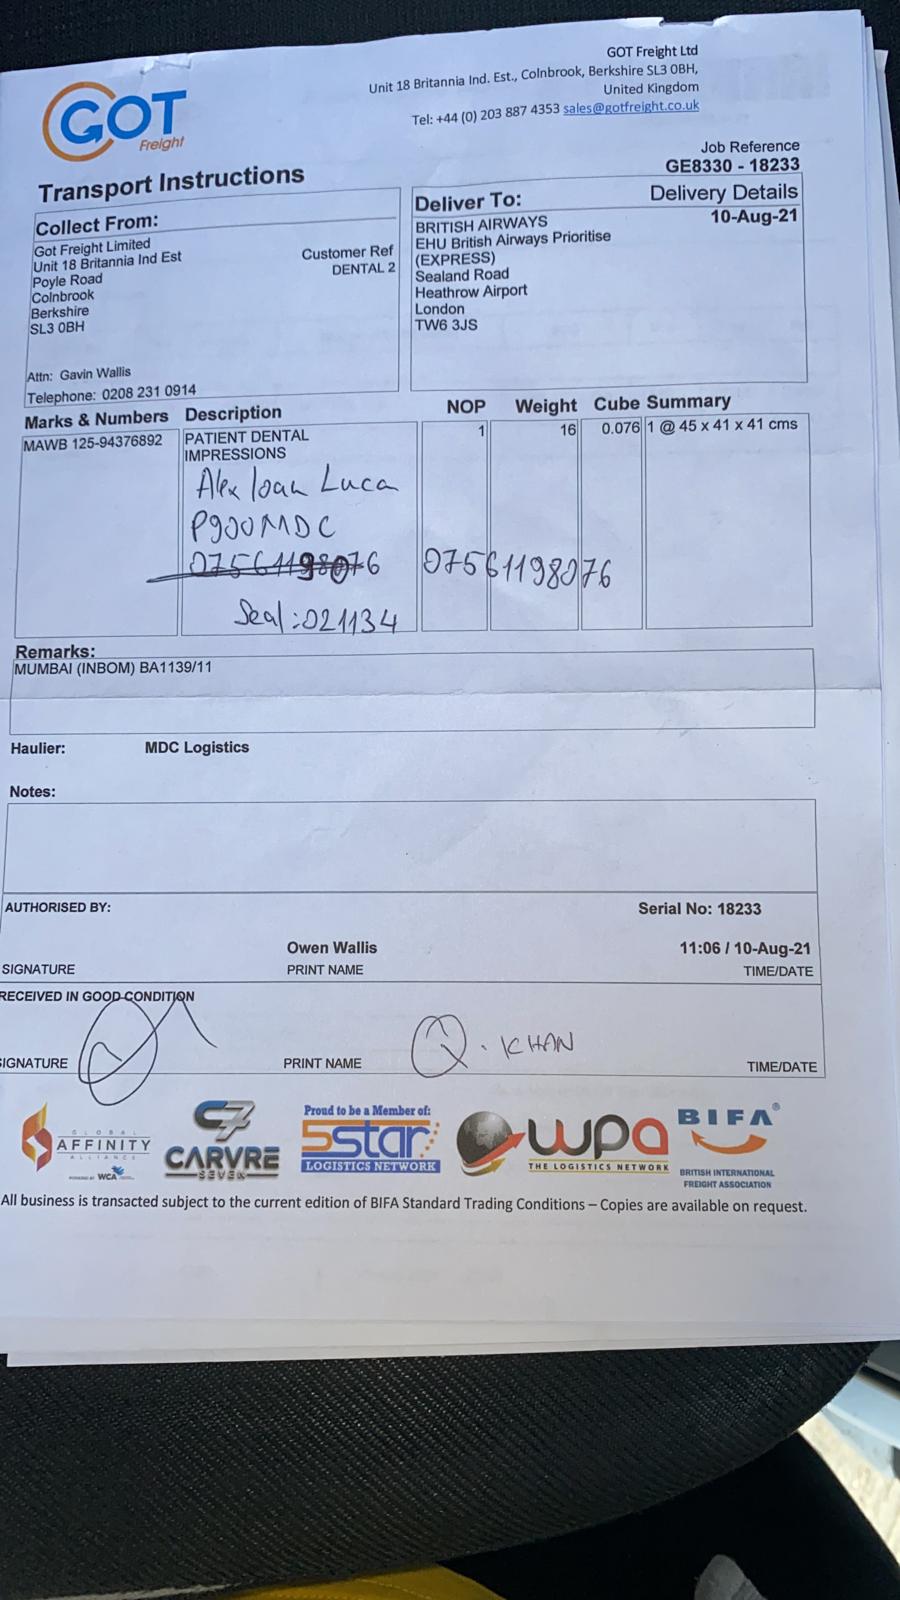 GOT
Freight
GOT Freight Ltd
Unit 18 Britannia Ind. Est., Colnbrook, Berkshire SL3 0BH,
United Kingdom
Tel: +44 (0) 203 887 4353 sales@gotfreight.co.uk
Job Reference
GE8330 - 18233
Transport Instructions
Collect From:
Got Freight Limited
Unit 18 Britannia Ind Est
Poyle Road
Colnbrook
Berkshire
SL3 0BH
Customer Ref
DENTAL 2
Attn: Gavin Wallis
Telephone: 0208 231 0914
Deliver To:
Delivery Details
10-Aug-21
BRITISH AIRWAYS
EHU British Airways Prioritise
(EXPRESS)
Sealand Road
Heathrow Airport
London
TW6 3JS
Marks & Numbers Description NOP Weight Cube Summary
MAWB 125-94376892 PATIENT DENTAL 1 16 0.076 1 @ 45 x 41 x 41 cms
IMPRESSIONS
Alex Ioan Luca
P900MDC
07561198076 07561198076
Seal: 021134
Remarks:
MUMBAI (INBOM) BA1139/11
Haulier: MDC Logistics
Notes:
AUTHORISED BY: Serial No: 18233
Owen Wallis 11:06 / 10-Aug-21
SIGNATURE PRINT NAME TIME/DATE
RECEIVED IN GOOD CONDITION
Q. KHAN
SIGNATURE PRINT NAME TIME/DATE
GLOBAL
AFFINITY
ALLIANCE
POWERED BY WCA
C7
CARVRE
SEVEN
Proud to be a Member of:
5star
LOGISTICS NETWORK
wpa
THE LOGISTICS NETWORK
BIFA®
BRITISH INTERNATIONAL
FREIGHT ASSOCIATION
All business is transacted subject to the current edition of BIFA Standard Trading Conditions – Copies are available on request.